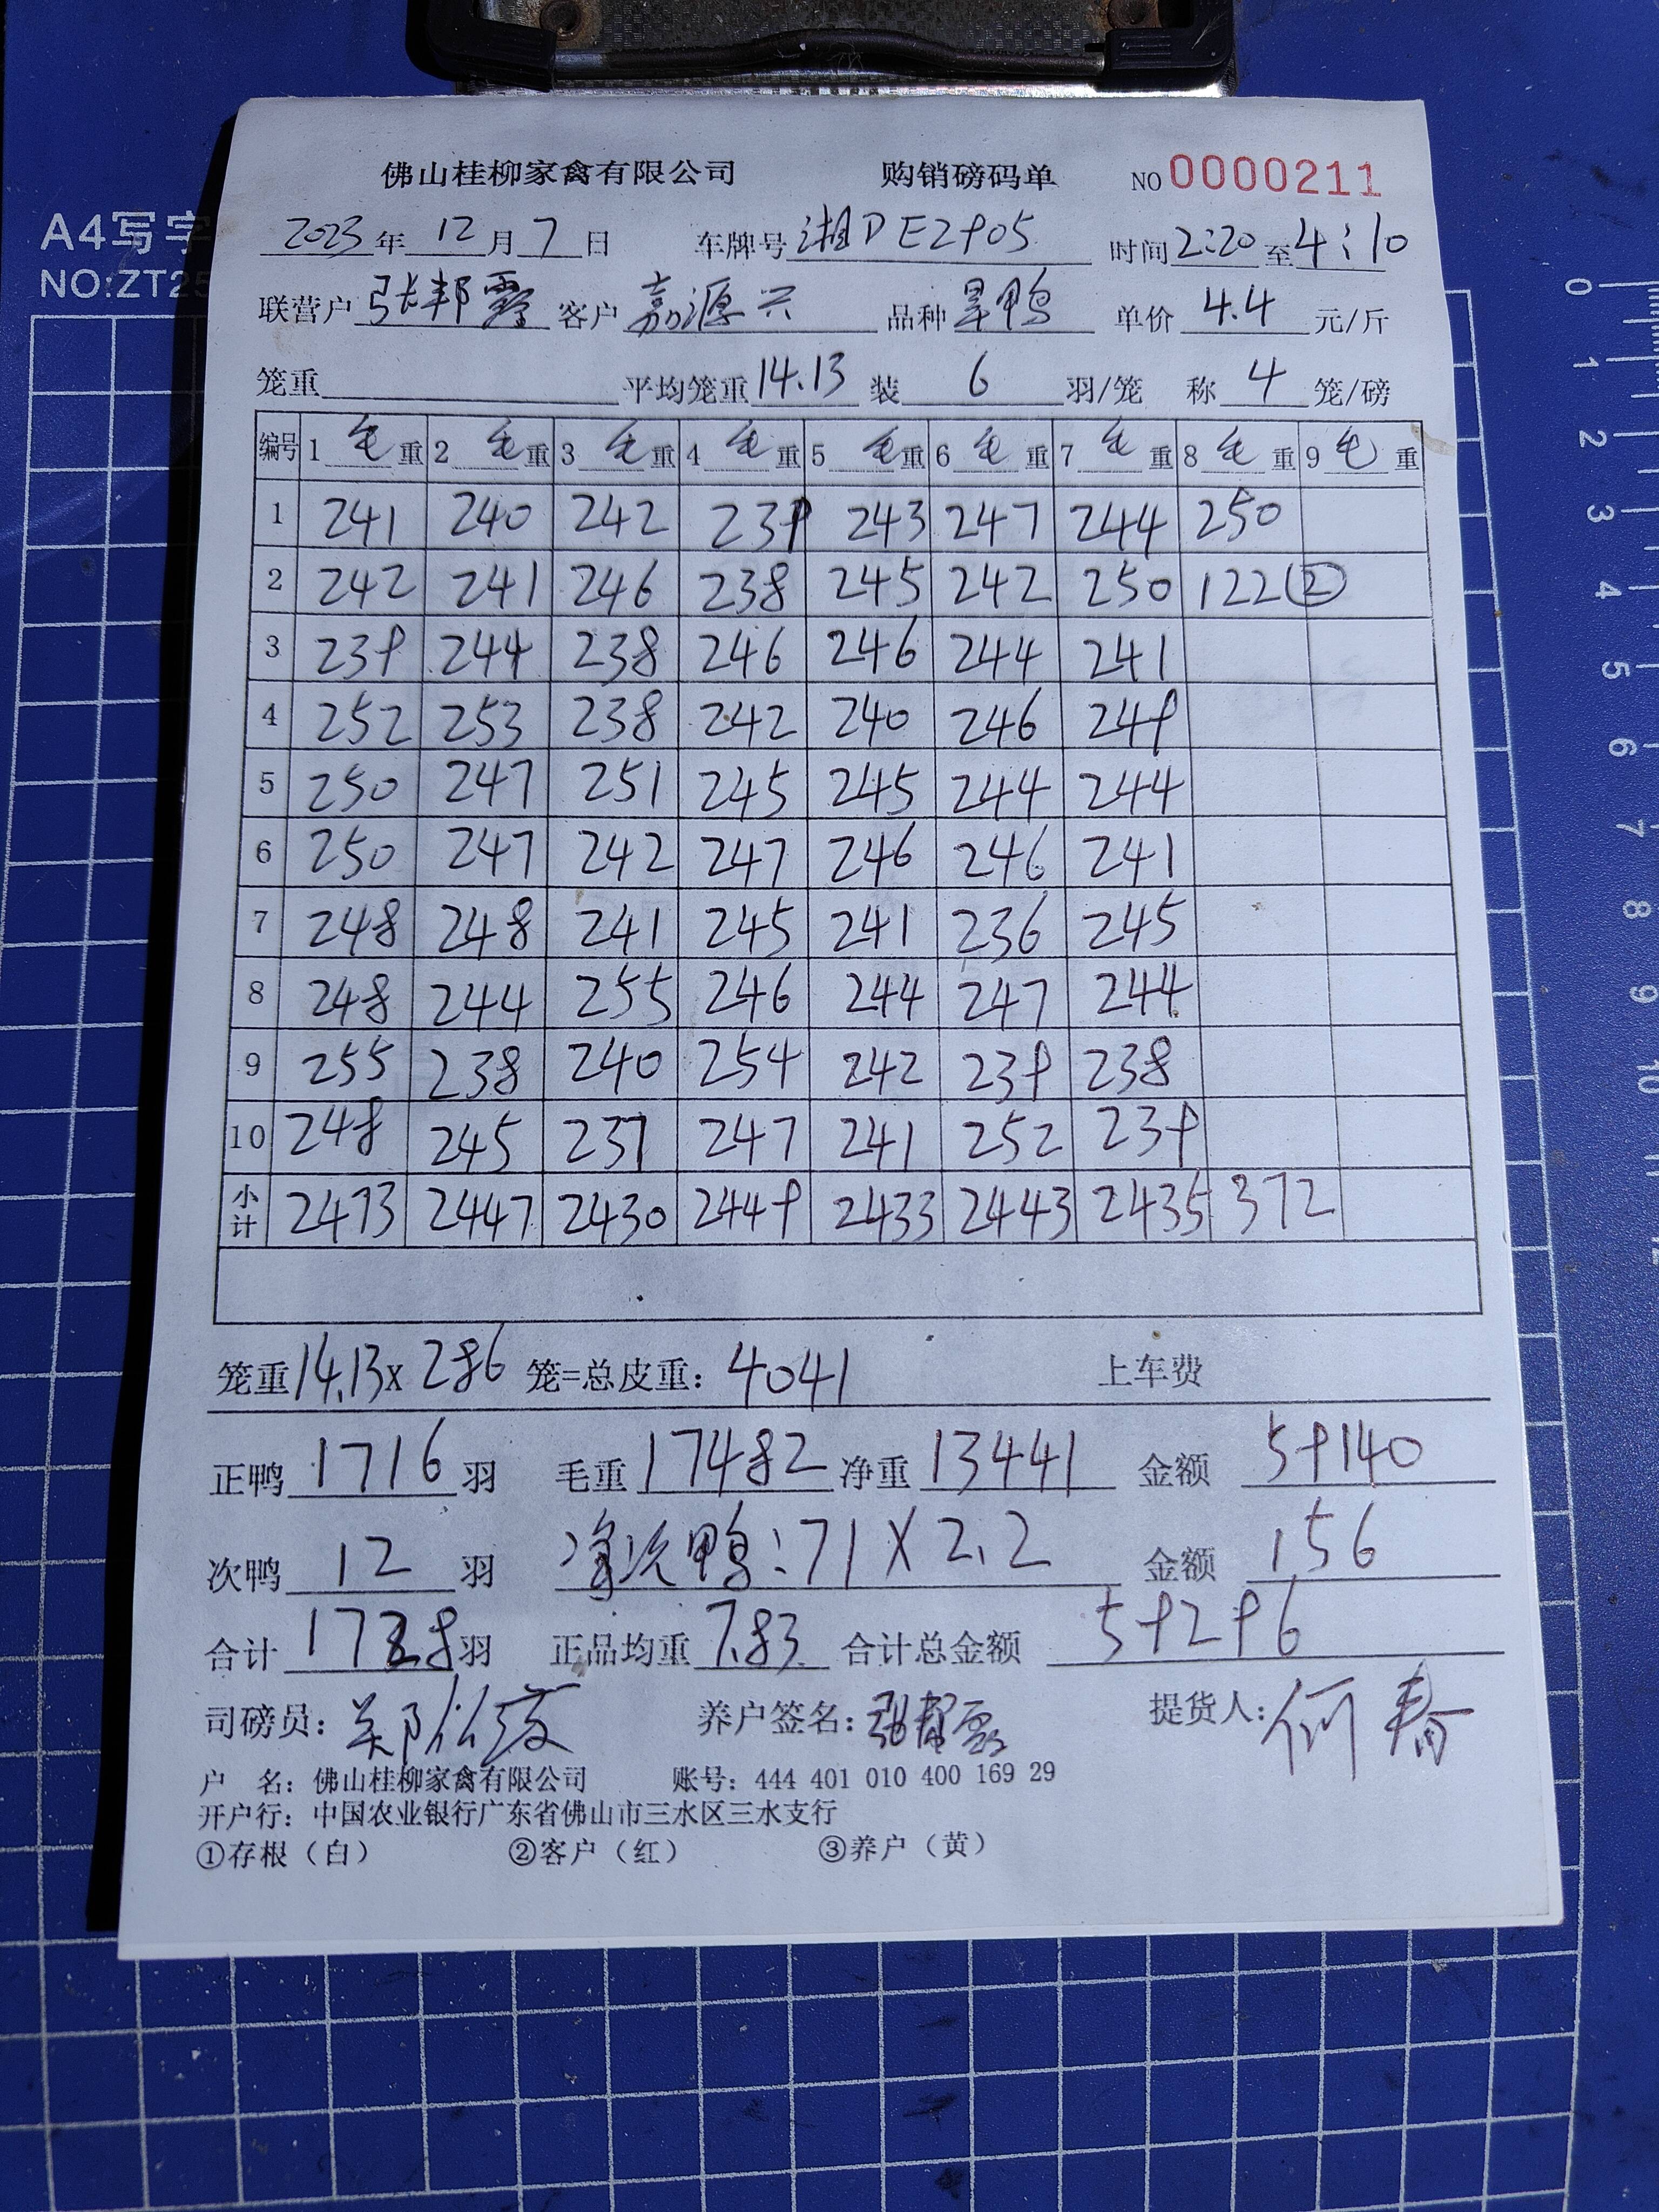 佛山桂柳家禽有限公司 购销磅码单 NO 0000211
A4写字
NO:ZT25
2023年 12月 7日 车牌号 湘D E2905 时间 2:20 至 4:10
联营户 张邦霞 客户 嘉源兴 品种 旱鸭 单价 4.4 元/斤
笼重 平均笼重 14.13 装 6 羽/笼 称 4 笼/磅
编号 1 毛重 2 毛重 3 毛重 4 毛重 5 毛重 6 毛重 7 毛重 8 毛重 9 毛重
1 241 240 242 239 243 247 244 250
2 242 241 246 238 245 242 250 122 ②
3 239 244 238 246 246 244 241
4 252 253 238 242 240 246 249
5 250 247 251 245 245 244 244
6 250 247 242 247 246 246 241
7 248 248 241 245 241 236 245
8 248 244 255 246 244 247 244
9 255 238 240 254 242 239 238
10 248 245 237 247 241 252 239
小计 2473 2447 2430 2449 2433 2443 2435 372
笼重 14.13 x 286 笼=总皮重: 4041 上车费
正鸭 1716 羽 毛重 17482 净重 13441 金额 59140
次鸭 12 羽 净次鸭:71 X 2.2 金额 156
合计 1728 羽 正品均重 7.83 合计总金额 59296
司磅员: 养户签名: 张邦霞 提货人: 何春
户 名: 佛山桂柳家禽有限公司 账号: 444 401 010 400 169 29
开户行: 中国农业银行广东省佛山市三水区三水支行
①存根（白） ②客户（红） ③养户（黄）
0 1 2 3 4 5 6 7 8 9 10 12